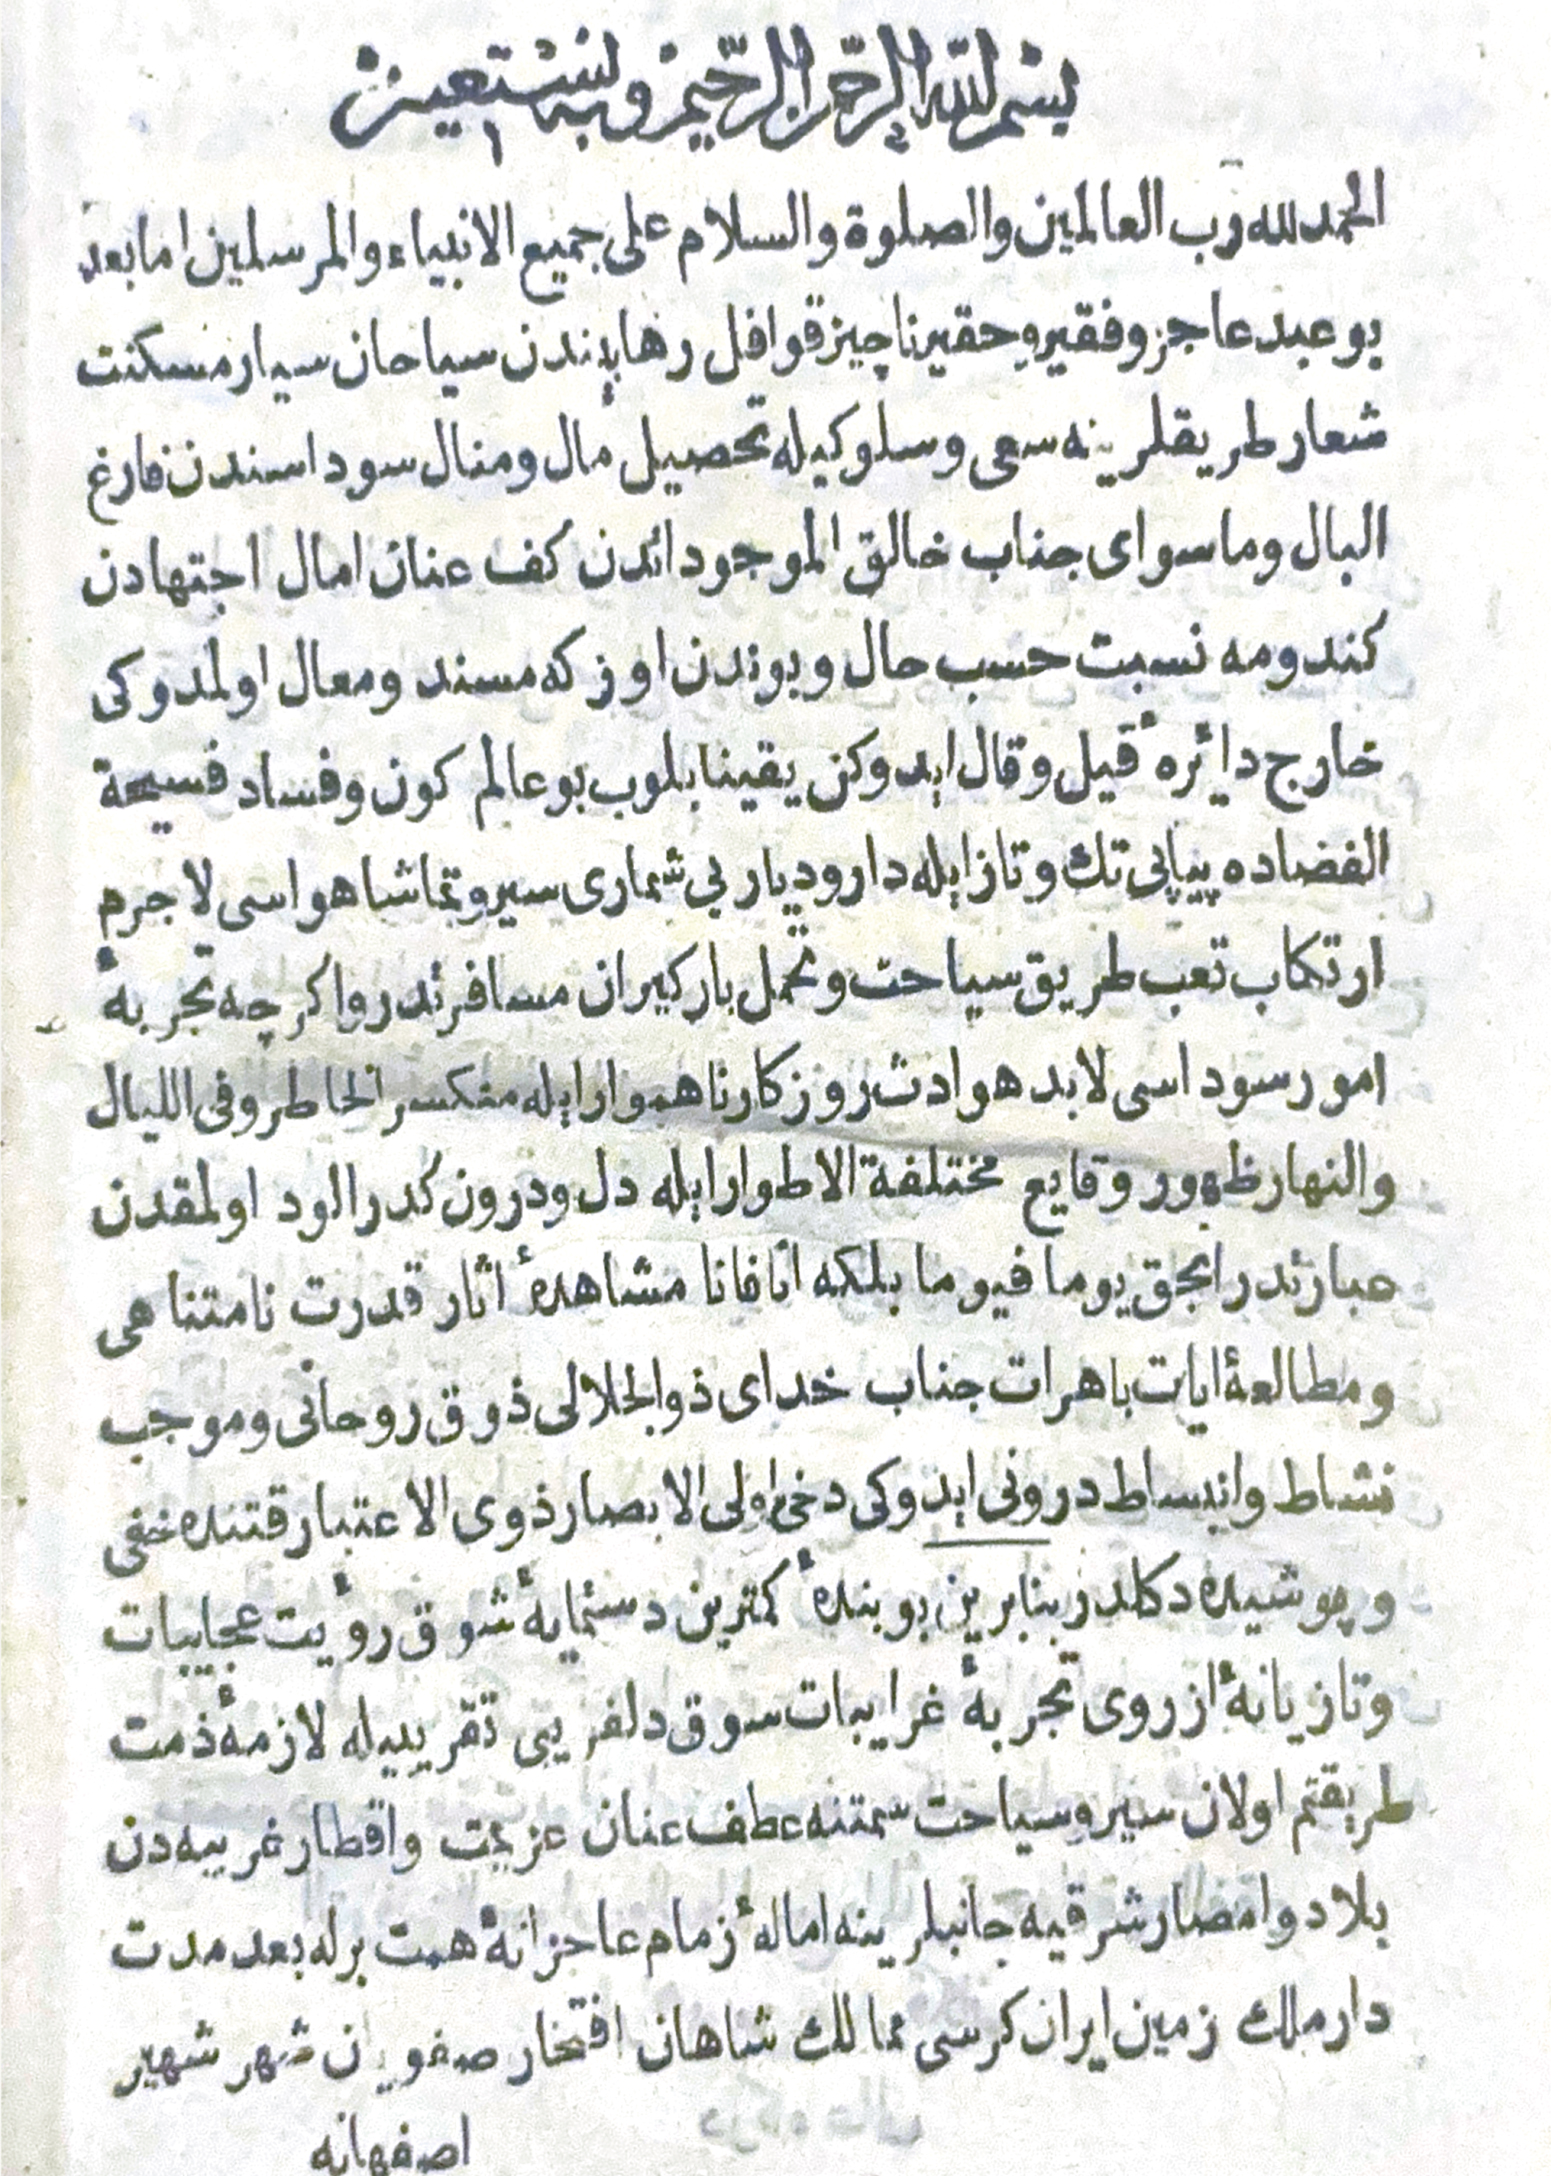 بسم الله الرحمن الرحيم وبه نستعين
الحمد لله رب العالمين والصلوة والسلام على جميع الانبياء والمرسلين اما بعد
بو عبد عاجز و فقير و حقير ناچيز قوافل رهابيندن سياحان سيار مسكنت
شعار طريقلرينه سعى و سلوكيله تحصيل مال و منال سوداسندن فارغ
البال وماسواى جناب خالق الموجوداتدن كف عنان امال اجتهادن
كندومه نسبت حسب حال و بوندن اوزكه مسند ومعال اولمدوكى
خارج دائرهٔ قيل وقال ايدوكن يقينا بلوب بو عالم كون وفساد فسيحة
الفضاده پياپى تك وتاز ايله دار وديار بي شمارى سير وتماشا هواسى لاجرم
ارتكاب تعب طريق سياحت وتحمل بار كيران مسافرتدر واكرچه تجربهٔ
امور سوداسى لابد هوادث روزكار ناهموار ايله منكسر الخاطر وفى الليال
والنهار ظهور وقايع مختلفة الاطوار ايله دل ودرون كدر الود اولمقدن
عبارتدر انجق يوما فيوما بلكه انا فانا مشاهدهٔ اثار قدرت نامتناهى
ومطالعهٔ ايات باهرات جناب خداى ذو الجلالى ذوق روحانى وموجب
نشاط وانبساط درونى ايدوكى دخى اولى الابصار ذوى الاعتبار قتنده خفى
وپوشيده دكلدر بنابرين بو بندهٔ كمترين دستمايهٔ شوق رؤيت عجايبات
وتازيانهٔ ازروى تجربهٔ غرايبات سوق دلفريبى تقريبيله لازمهٔ ذمت
طريقتم اولان سير وسياحت سمتنه عطف عنان عزيمت واقطار غربيه دن
بلاد وامصار شرقيه جانبلرينه امالهٔ زمام عاجزانهٔ همت برله بعد مدت
دار ملك زمين ايران كرسى ممالك شاهان افتخار صفويان شهر شهير
اصفهانه